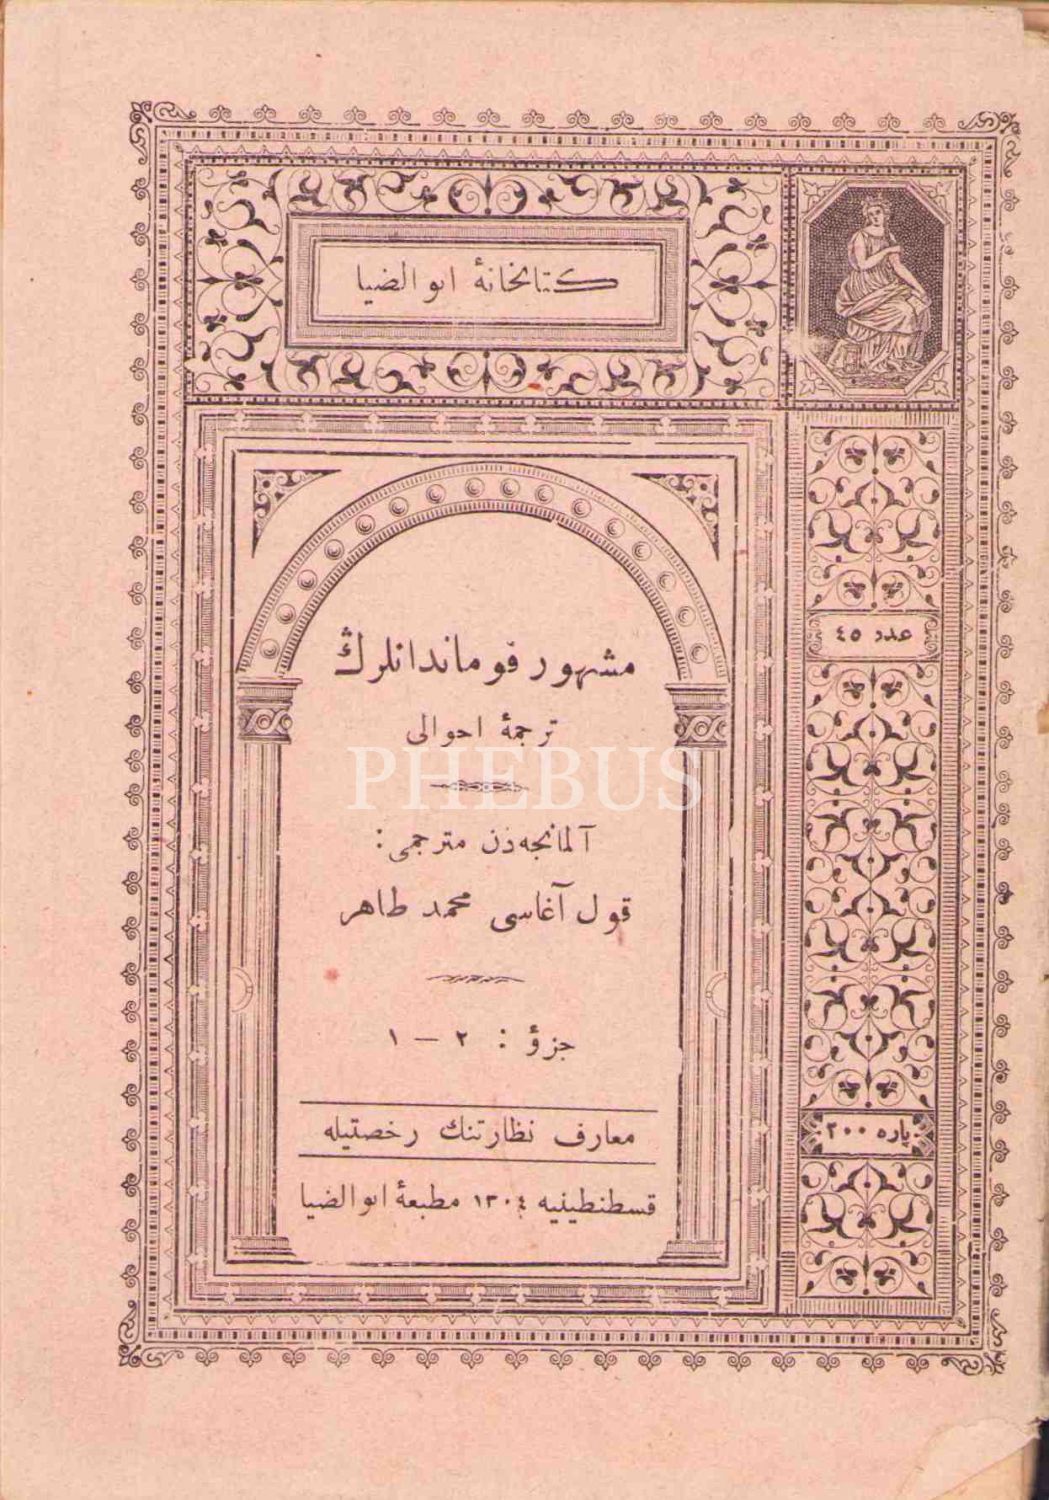 كتابخانهٔ ابوالضيا
عدد ٤٥
مشهور قوماندانلرڭ
ترجمهٔ احوالى
PHEBUS
آلمانجه‌دن مترجمى:
قول آغاسى محمد طاهر
جزؤ : ٢ — ١
پاره ٢٠٠
معارف نظارتنك رخصتيله
قسطنطينيه ١٣٠٤ مطبعهٔ ابوالضيا